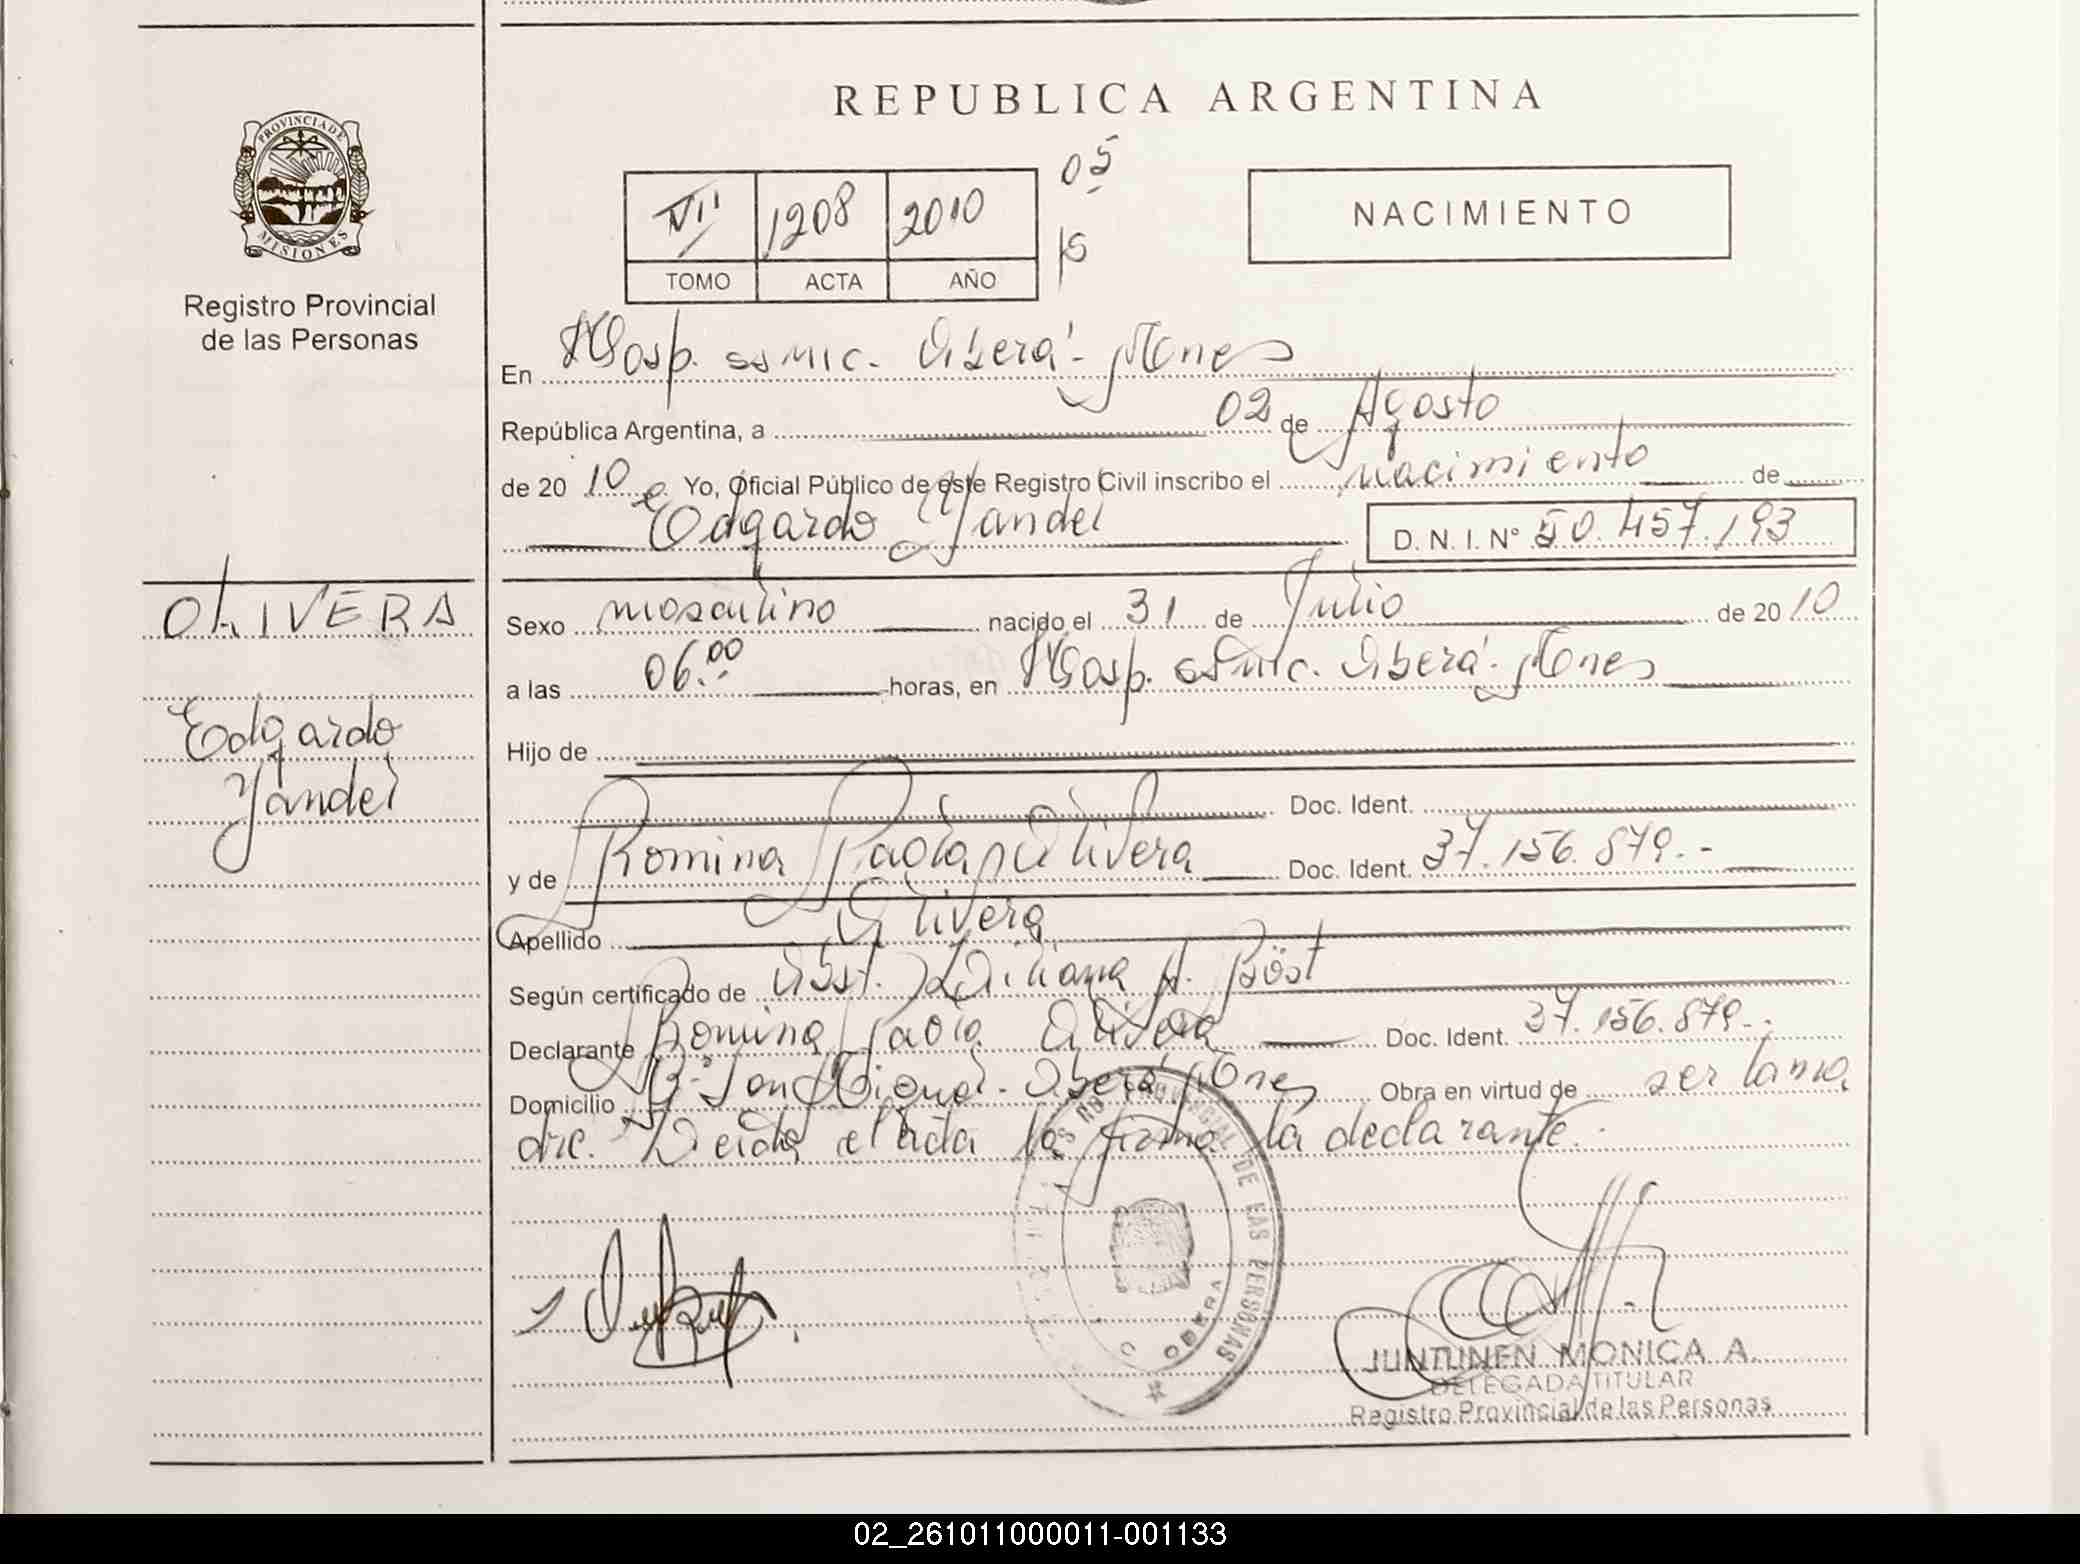 REPUBLICA ARGENTINA
PROVINCIA DE
MISIONES
Registro Provincial
de las Personas
VII 1208 2010
TOMO ACTA AÑO
05
NACIMIENTO
En Hosp. ssmic. Oberá - Mnes
República Argentina, a 02 de Agosto
de 20 10 Yo, Oficial Público de este Registro Civil inscribo el nacimiento de
Edgardo Yandel D. N. I. N° 50.457.193
OLIVERA
Edgardo
Yandel
Sexo masculino nacido el 31 de Julio de 20 10
a las 06.00 horas, en Hosp. ssmic. Oberá - Mnes
Hijo de
Doc. Ident.
y de Romina Paola Olivera Doc. Ident. 37.156.879.-
Apellido Olivera
Según certificado de Obst. Liliana A. Böst
Declarante Romina Paola Olivera Doc. Ident. 37.156.879.-
Domicilio B° San Miguel - Oberá Mnes Obra en virtud de ser la ma
dre. Leida el acta la firma la declarante.-
PROVINCIAL DE LAS PERSONAS
OBERA
JUNTUNEN MONICA A.
DELEGADA TITULAR
Registro Provincial de las Personas
02_261011000011-001133